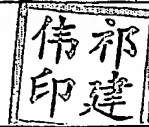 祁建
伟印